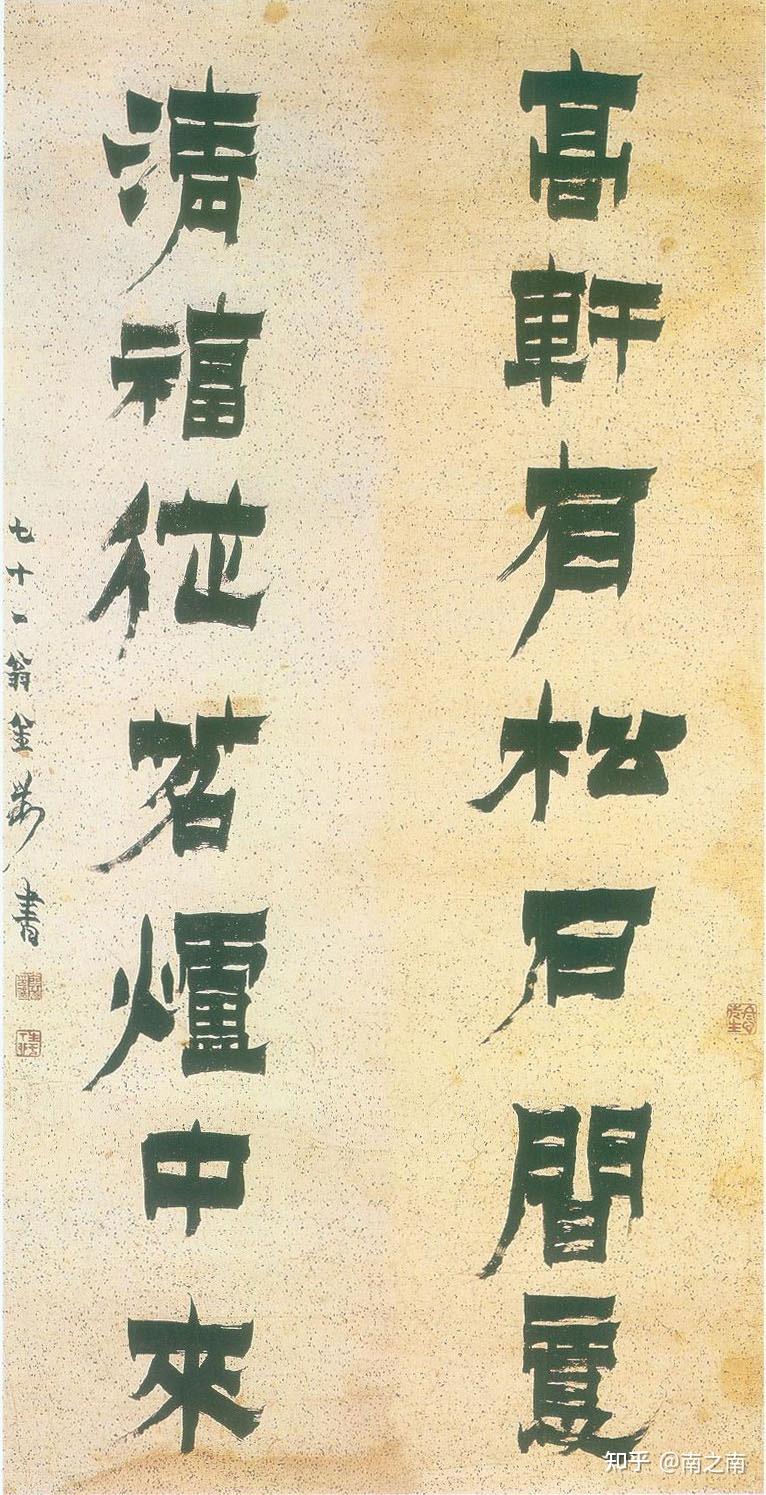 高軒有松石間
清福從茗爐中來
七十一翁金農書
知乎 @南之南